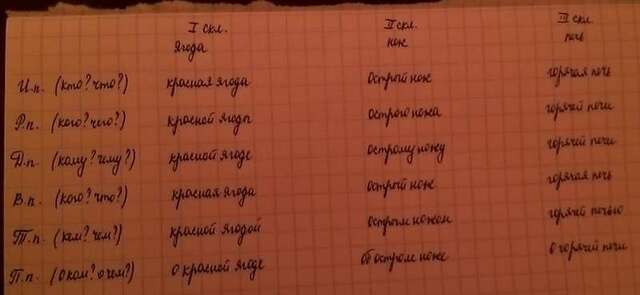 I скл. II скл. III скл.
ягода нож печь
И.п. (кто? что?) красная ягода острый нож горячая печь
Р.п. (кого? чего?) красной ягоды острого ножа горячей печи
Д.п. (кому? чему?) красной ягоде острому ножу горячей печи
В.п. (кого? что?) красная ягода острый нож горячая печь
Т.п. (кем? чем?) красной ягодой острым ножом горячей печью
П.п. (о ком? о чем?) о красной ягоде об остром ноже о горячей печи